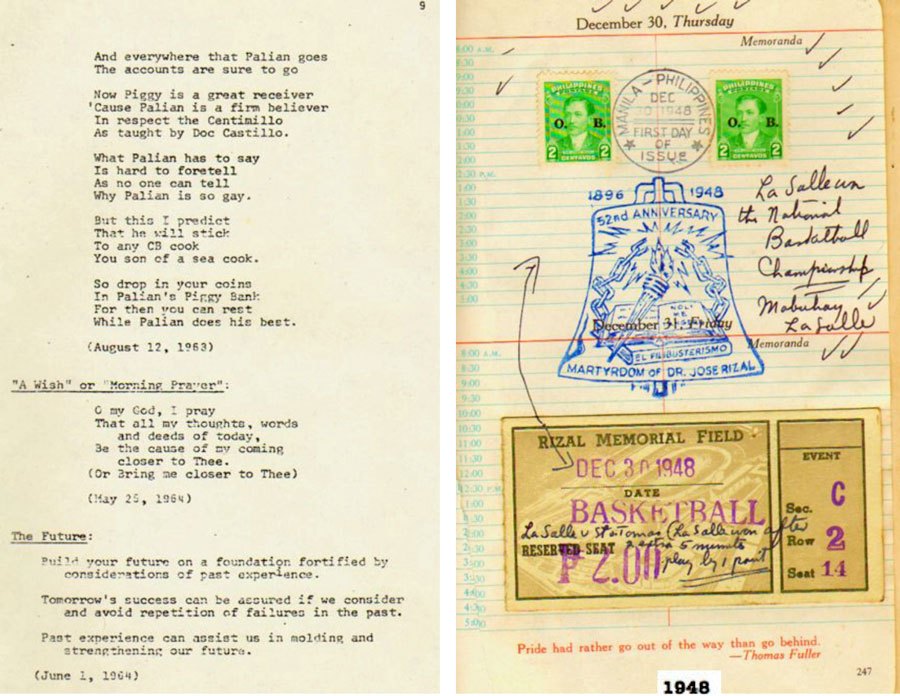 9
And everywhere that Palian goes
The accounts are sure to go
Now Piggy is a great receiver
'Cause Palian is a firm believer
In respect the Centimillo
As taught by Doc Castillo.
What Palian has to say
Is hard to foretell
As no one can tell
Why Palian is so gay.
But this I predict
That he will stick
To any CB cook
You son of a sea cook.
So drop in your coins
In Palian's Piggy Bank
For then you can rest
While Palian does his best.
(August 12, 1963)
"A Wish" or "Morning Prayer":
O my God, I pray
That all my thoughts, words
and deeds of today,
Be the cause of my coming
closer to Thee.
(Or Bring me closer to Thee)
(May 25, 1964)
The Future:
Build your future on a foundation fortified by
considerations of past experience.
Tomorrow's success can be assured if we consider
and avoid repetition of failures in the past.
Past experience can assist us in molding and
strengthening our future.
(June 1, 1964)
December 30, Thursday
Memoranda
8:00 A.M.
8:30
9:00
PHILIPPINES
O. B.
2 CENTAVOS 2
MANILA - PHILIPPINES
DEC
30 1948
FIRST DAY
OF
ISSUE
PHILIPPINES
O. B.
2 CENTAVOS 2
1:00
1:30
2:00
2:30
3:00
3:30
4:00
4:30
5:00
La Salle won
the National
Basketball
Championship
Mabuhay
La Salle
1896 1948
52nd ANNIVERSARY
NOLI
ME
December 31, Friday
EL FILIBUSTERISMO
MARTYRDOM OF DR. JOSE RIZAL
Memoranda
8:00 A.M.
8:30
9:00
9:30
10:00
10:30
11:00
11:30
12:00
12:30 P.M.
RIZAL MEMORIAL FIELD
DEC 30 1948
DATE
BASKETBALL
La Salle v Sto Tomas (La Salle won after
RESERVED SEAT 2 extra 5 minute
₱2.00 play by 1 point
EVENT
Sec. C
Row 2
Seat 14
1:00
1:30
2:00
2:30
3:00
3:30
4:00
4:30
5:00
Pride had rather go out of the way than go behind.
—Thomas Fuller
1948
247